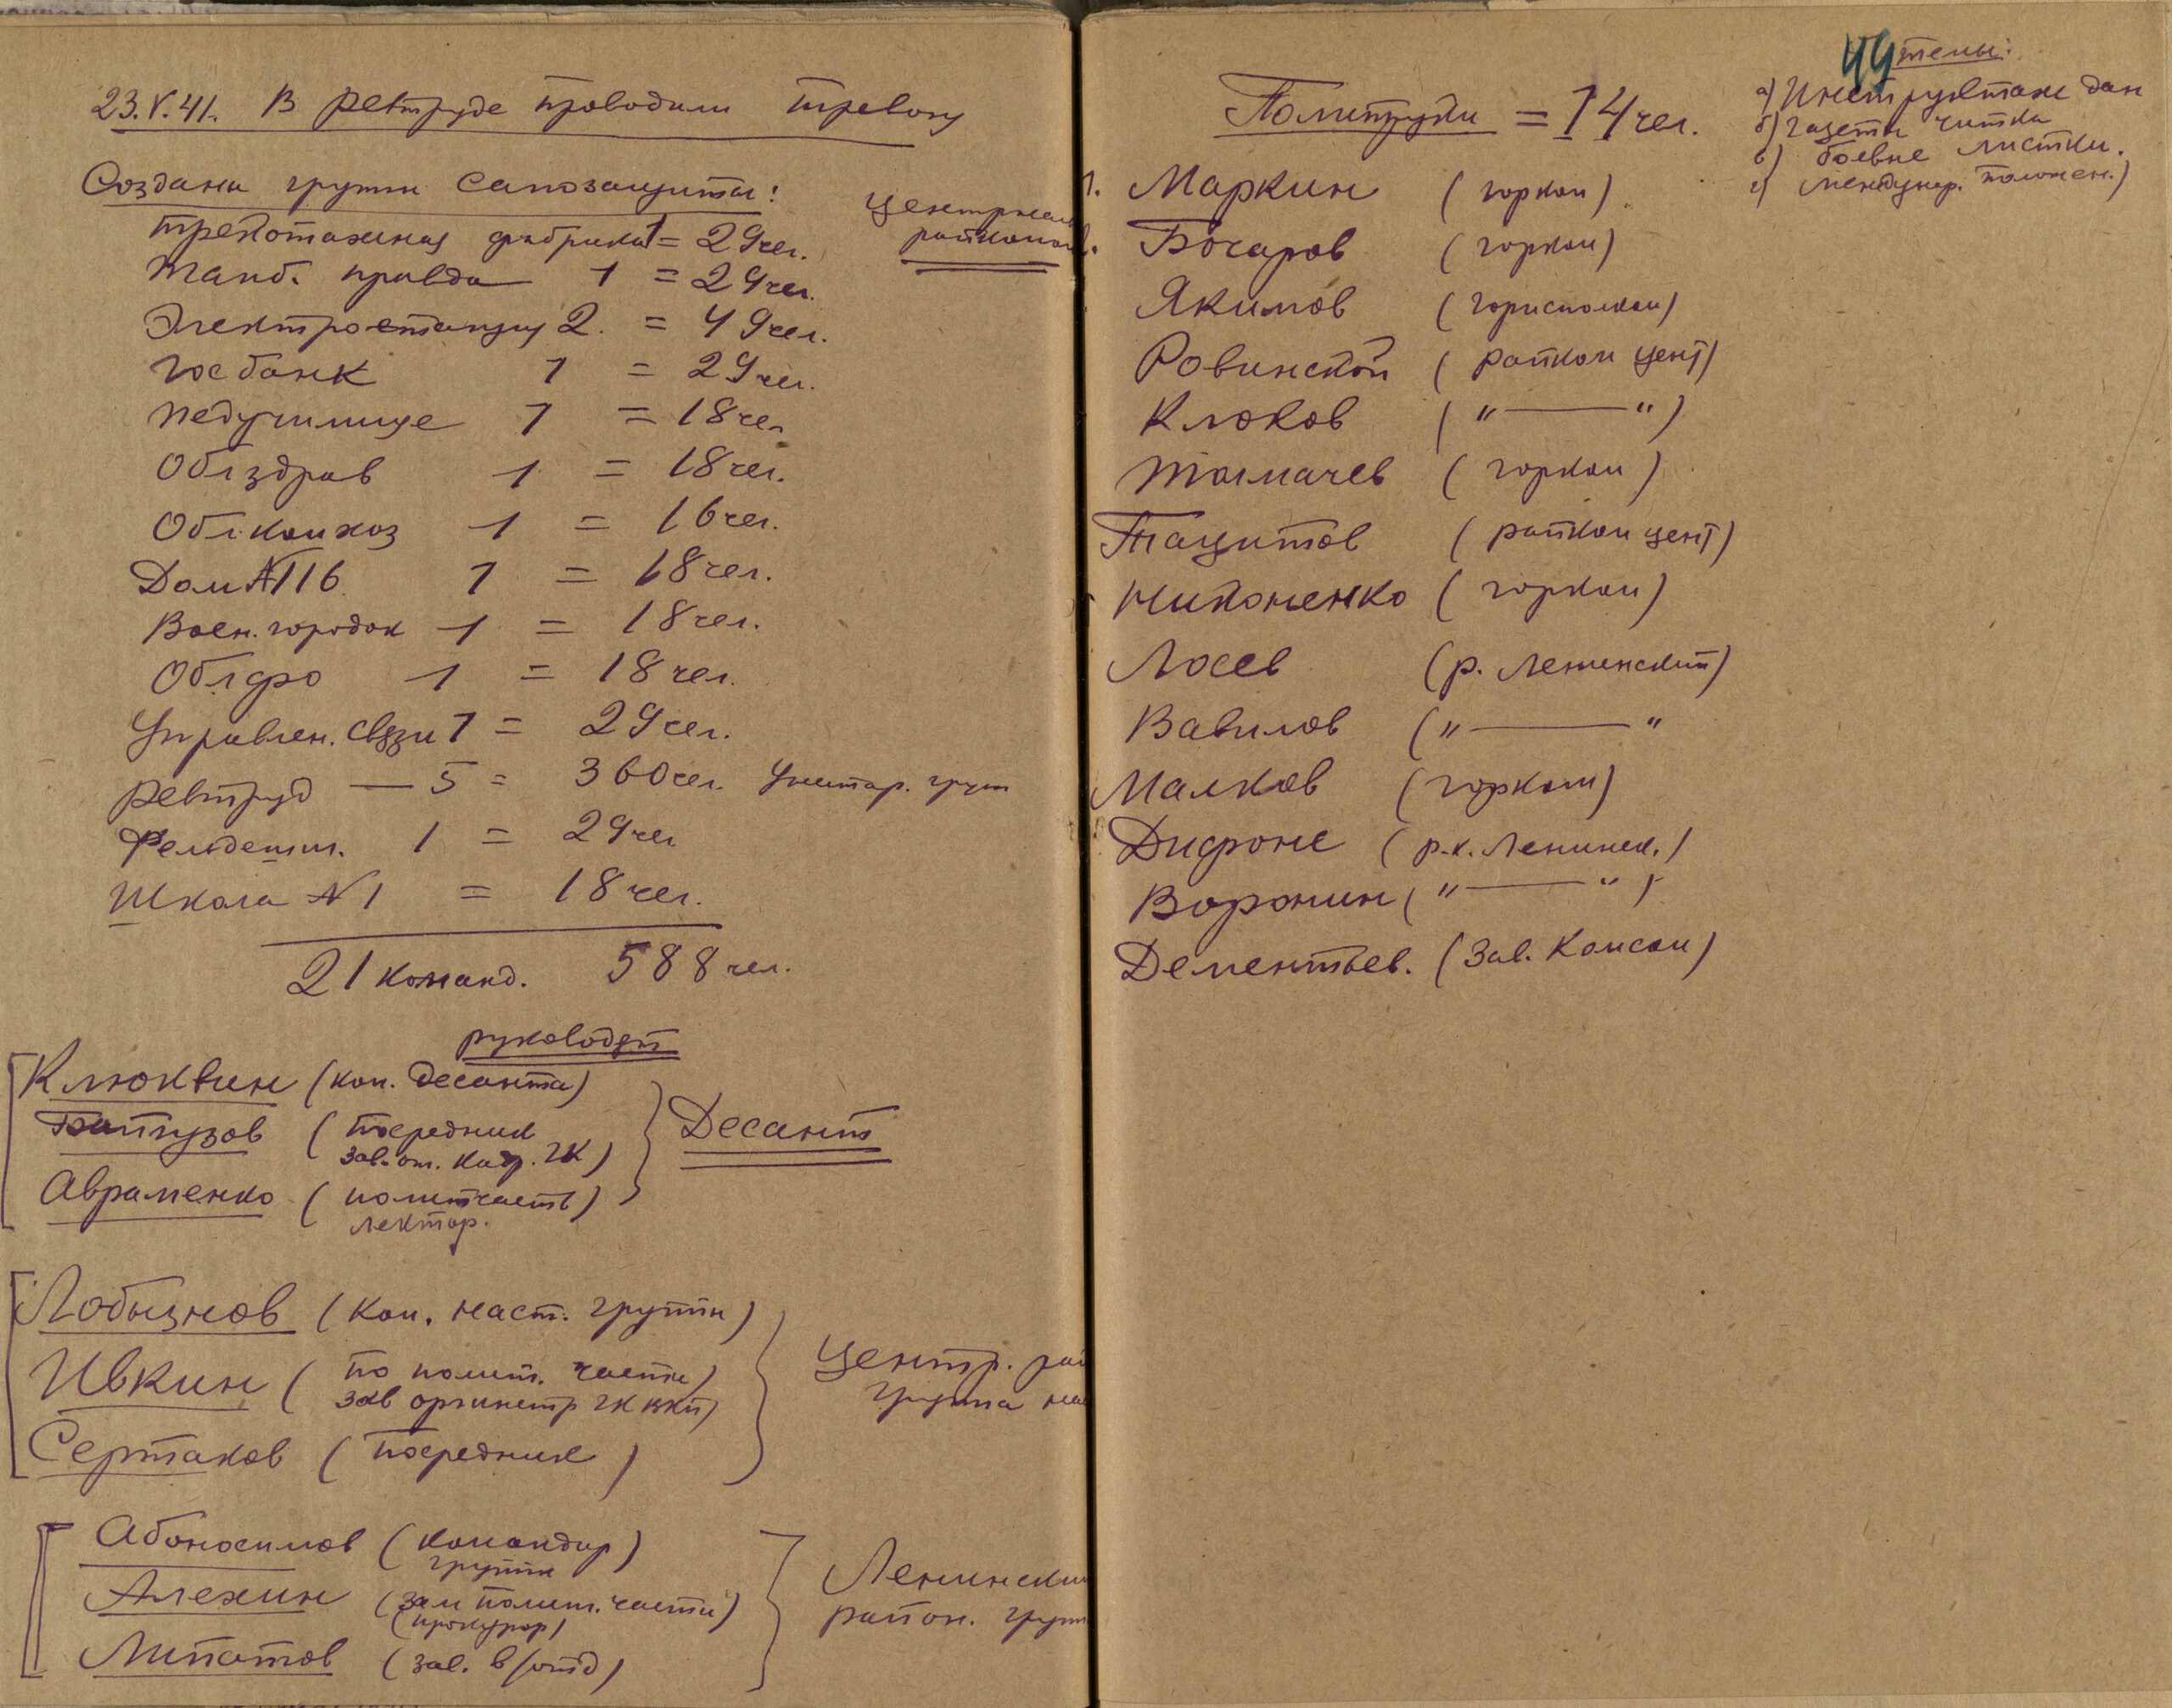 23.V.41. В Ревтруде проводили тревогу
Созданы группы самозащиты:
Центральн
районом
трикотажная фабрика 1 = 29 чел.
Тамб. правда 1 = 29 чел.
Электростанция 2. = 49 чел.
Госбанк 1 = 29 чел.
Педучилище 1 = 18 чел
Облздрав 1 = 18 чел.
Облкомхоз 1 = 16 чел.
Дом №116 1 = 18 чел.
Воен. городок 1 = 18 чел.
Облфо 1 = 18 чел.
Управлен. связи 1 = 29 чел.
Ревтруд — 5 = 360 чел. Унитар. груп
Фельдшш. 1 = 29 чел
Школа №1 = 18 чел.
21 команд. 588 чел.
руководят
Клюквин (ком. десанта)
(посредник
зав. от. кадр. ГК)
Десант
Авраменко (политчасть)
лектор.
Лобызнов (ком. наст. группы)
Ивкин (по полит. части)
зав оргинстр ГК ВКП)
Центр. рай
группа на
Сертаков (посредник)
Абоносимов (командир)
группы
Алехин (зам полит. части)
(прокурор)
Ленински
район. груп
Липатов (зав. в/отд)
49
темы:
а) Инструктаж дан
б) газеты читка
в) боевые листки.
г) междунар. положен.)
Политруки = 14 чел.
1. Маркин (горком)
Бочаров (горком)
Якимов (горисполком)
Ровинский (райком цент)
Клоков (" —— ")
Толмачев (горком)
Тацитов (райком цент)
Никоненко (горком)
Лосев (р. Ленинский)
Вавилов (" —— "
Малков (горком)
Дифоне (р.к. Ленинск.)
Воронин (" —— ")
Дементьев. (зав. Комсом)